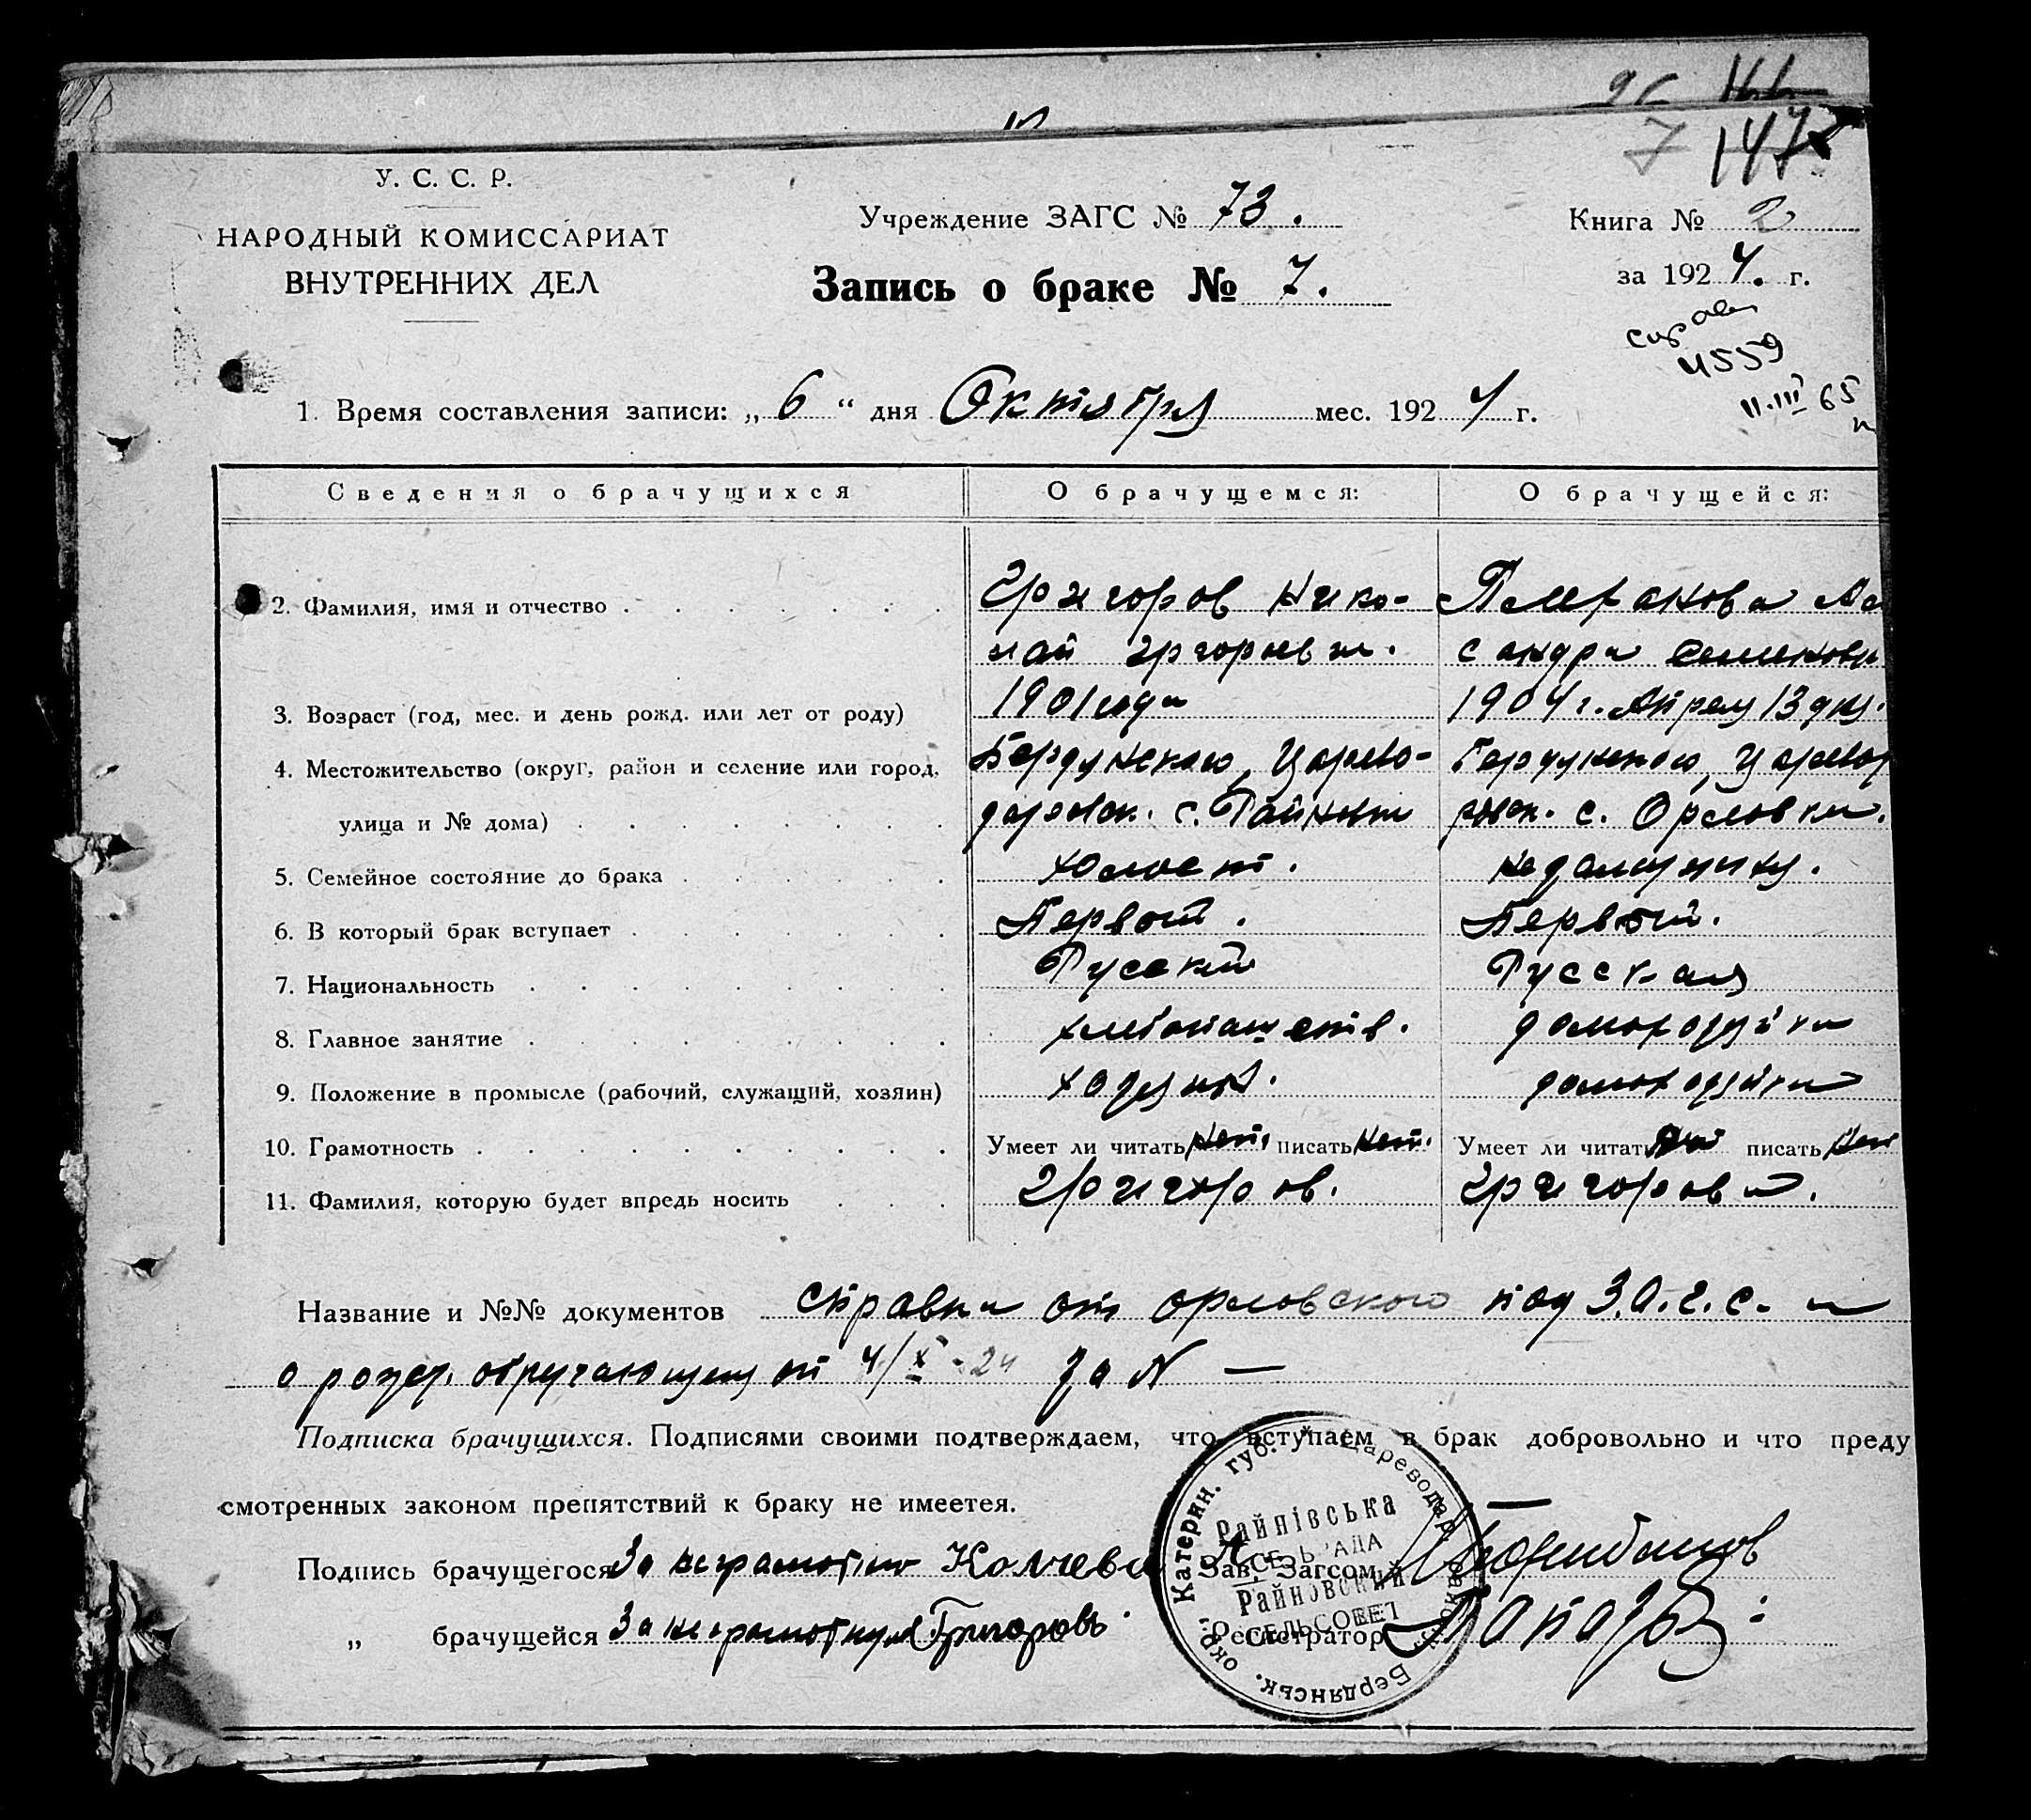 147
У. С. С. Р.
НАРОДНЫЙ КОМИССАРИАТ
ВНУТРЕННИХ ДЕЛ
Учреждение ЗАГС № 73.
Запись о браке № 7.
Книга № 2
за 1924. г.
4559
11.III 65
1. Время составления записи: „ 6 “ дня Октября мес. 1924 г.
Сведения о брачущихся О брачущемся: О брачущейся:
2. Фамилия, имя и отчество Григоров Нико-
лай
сандра Семеновн
3. Возраст (год, мес. и день рожд. или лет от роду) 1901 года 1904 г. Апреля 13 дня.
4. Местожительство (округ, район и селение или город, Бердянского, Царево- Бердянского, Царевод
улица и № дома) даровск. с. Райновки с. Орловки.
5. Семейное состояние до брака холост.
6. В который брак вступает Первый. Первый.
7. Национальность Русский Русская
8. Главное занятие хлебопашеств. домохозяйка
9. Положение в промысле (рабочий, служащий, хозяин) хозяин. домохозяйка
10. Грамотность Умеет ли читать нет, писать нет. Умеет ли читать нет писать нет
11. Фамилия, которую будет впредь носить Григоров. Григорова.
Название и №№ документов справка от орловского под З.А.Г.С. а
о рожд. от 4/X-24 за N —
Подписка брачущихся. Подписями своими подтверждаем, что вступаем в брак добровольно и что преду
смотренных законом препятствий к браку не имеется.
Подпись брачущегося За неграмотно Зав. Загсом
„ брачущейся За неграмотную Григоровъ Регистратор
Катерин. губ. * Цареводар. район. Бердянськ. окр.
Райнівська
СЕЛЬРАДА
Райновский
СЕЛЬСОВЕТ